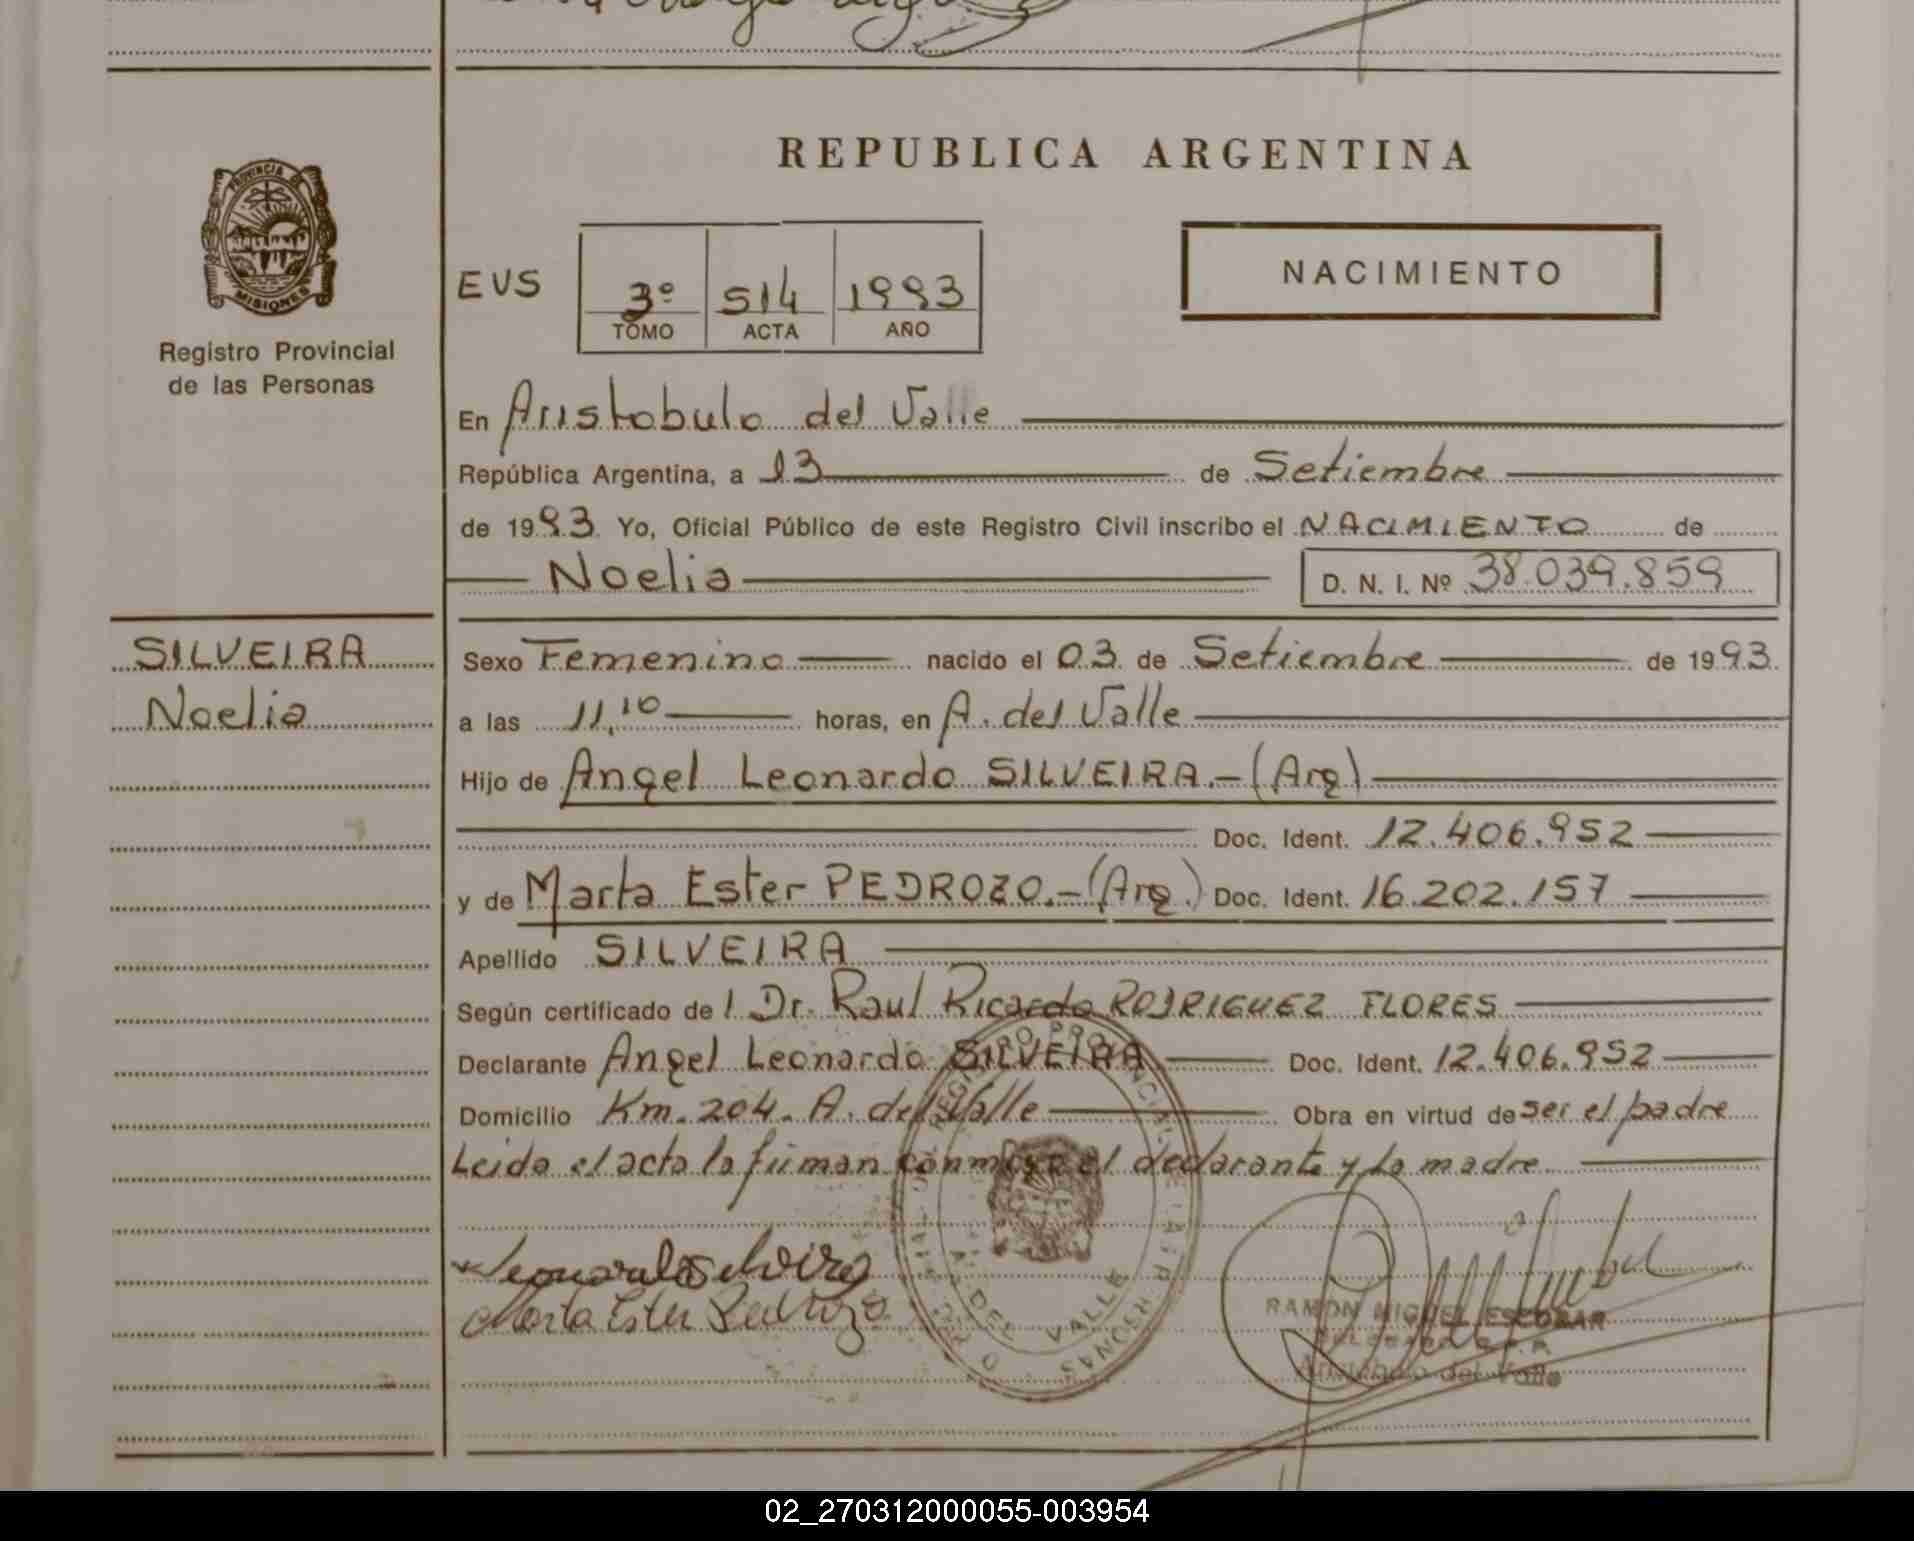 REPUBLICA ARGENTINA
PROVINCIA DE
MISIONES
Registro Provincial
de las Personas
EVS 3º 514 1993
TOMO ACTA AÑO
NACIMIENTO
En Aristobulo del Valle
República Argentina, a 13 de Setiembre
de 1993 Yo, Oficial Público de este Registro Civil inscribo el NACIMIENTO de
Noelia D. N. I. Nº 38.039.859
SILVEIRA
Noelia
Sexo Femenino nacido el 03 de Setiembre de 1993
a las 11,10 horas, en A. del Valle
Hijo de Angel Leonardo SILVEIRA.-(Arg)
Doc. Ident. 12.406.952
y de Marta Ester PEDROZO.-(Arg.) Doc. Ident. 16.202.157
Apellido SILVEIRA
Según certificado del Dr. Raul Ricardo RODRIGUEZ FLORES
Declarante Angel Leonardo SILVEIRA Doc. Ident. 12.406.952
Domicilio Km. 204. A. del Valle Obra en virtud de ser el padre
Leida el acta la firman conmigo el declarante y la madre
Leonardo Silveira
Marta Ester Pedrozo
A. DEL VALLE
RAMON MIGUEL ESCOBAR
Aristobulo del Valle
02_270312000055-003954